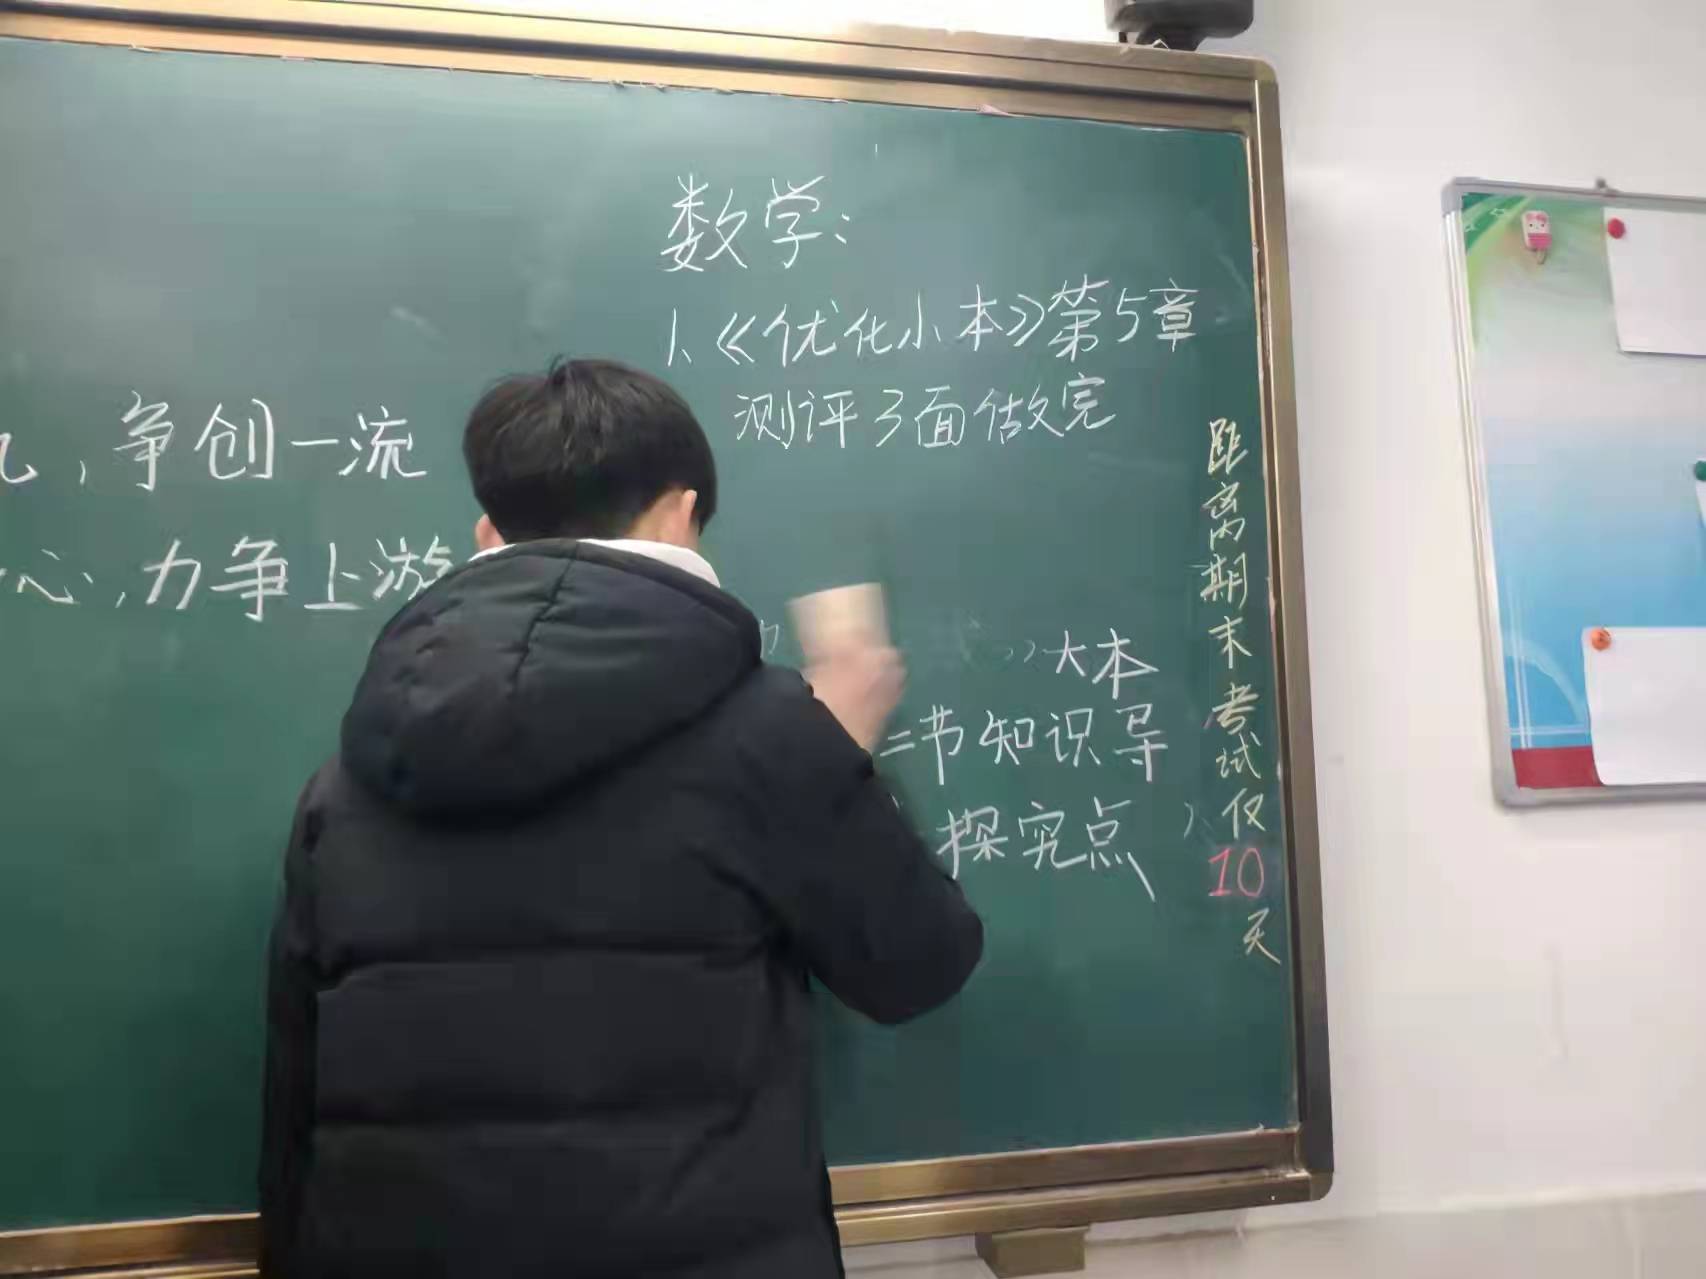 争创一流
心,力争上游
数学:
1、《优化小本》第5章
测评3面做完
大本
二节知识导
探究点
距离期末考试仅10天